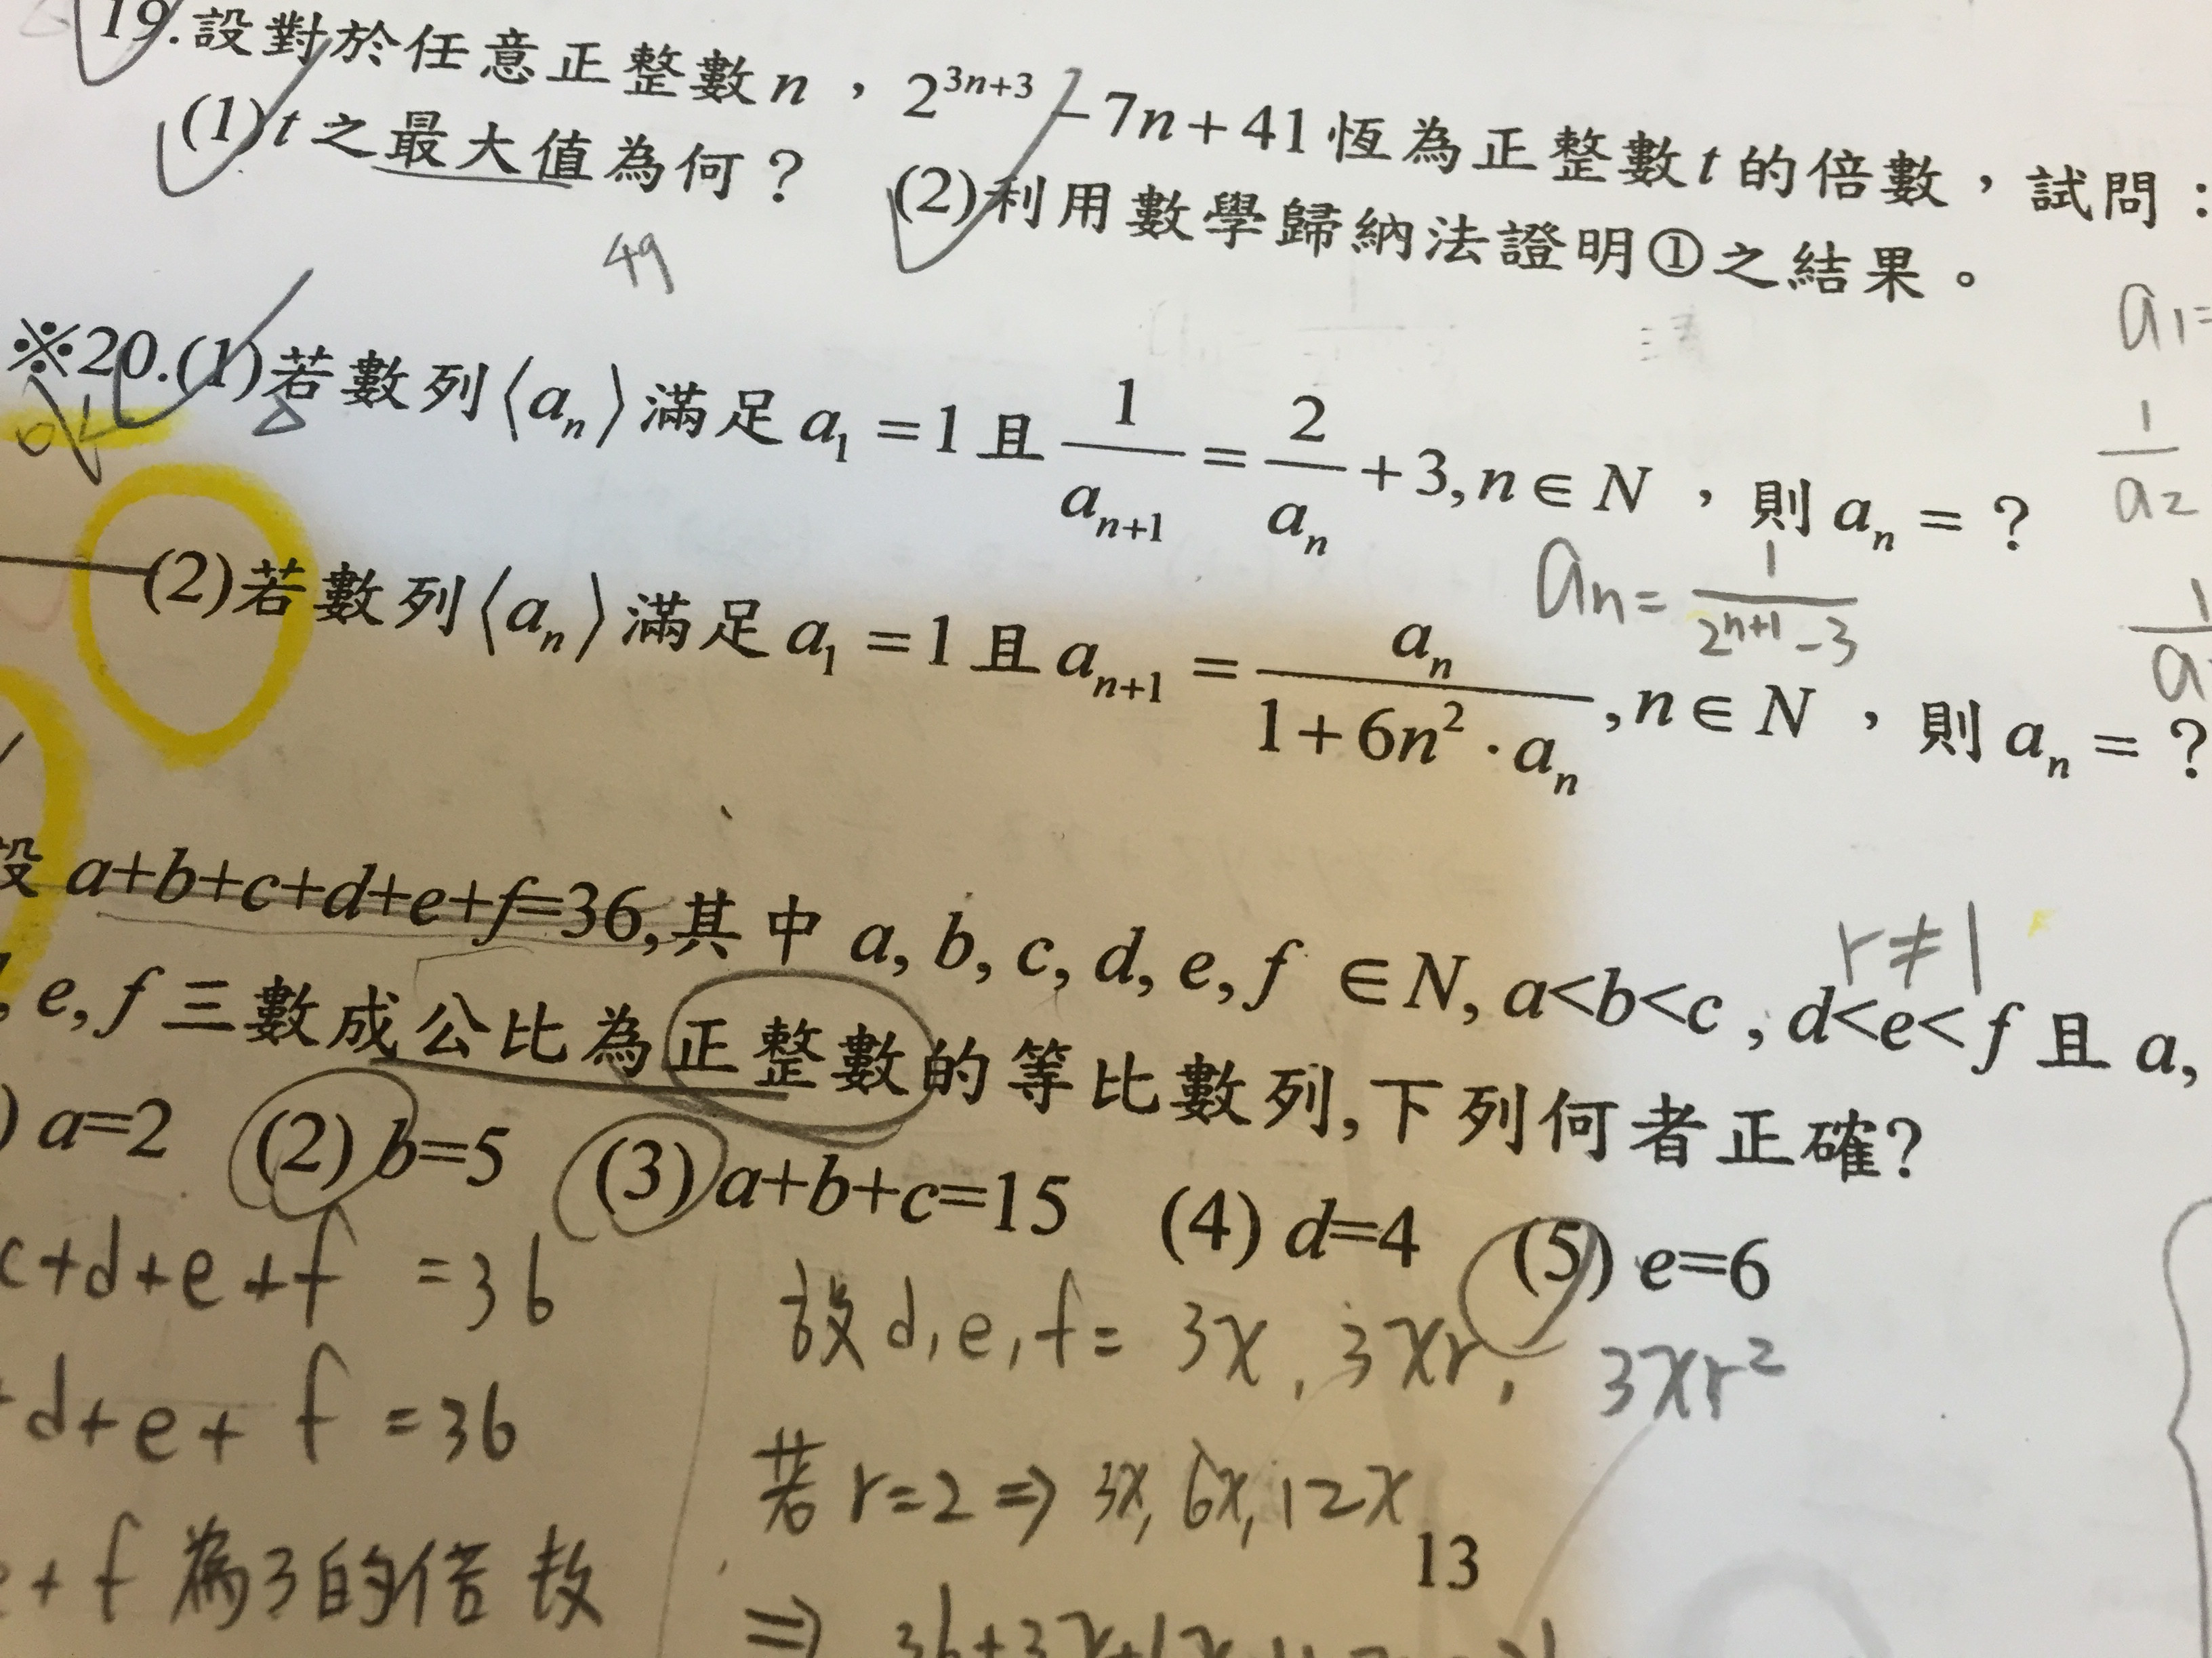 19.設對於任意正整數n，2^{3n+3}-7n+41恆為正整數t的倍數，試問：
(1)t之最大值為何？ (2)利用數學歸納法證明①之結果。
49
a1=
※20.(1)若數列⟨a_n⟩滿足a_1=1且\frac{1}{a_{n+1}}=\frac{2}{a_n}+3,n∈N，則a_n=？
\frac{1}{a2}
an=\frac{1}{2^{n+1}-3}
(2)若數列⟨a_n⟩滿足a_1=1且a_{n+1}=\frac{a_n}{1+6n^2·a_n},n∈N，則a_n=？
設 a+b+c+d+e+f=36,其中 a, b, c, d, e, f ∈N, a<b<c , d<e< f 且 a,
r≠1
, e, f 三數成公比為正整數的等比數列,下列何者正確?
) a=2 (2) b=5 (3) a+b+c=15 (4) d=4 (5) e=6
c+d+e+f =36
設 d,e,f= 3x, 3xr, 3xr²
+d+e+ f =36
若 r=2 ⇒ 3x, 6x, 12x
13
e+f 為3的倍数